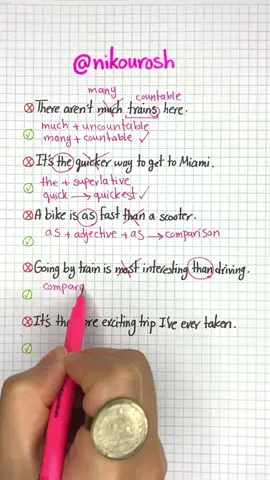 @nikourosh
many
countable
There aren't much trains here.
much + uncountable
many + countable ✓
It's the quicker way to get to Miami.
the + superlative
quick → quickest ✓
A bike is as fast than a scooter.
as + adjective + as → comparison
Going by train is most interesting than driving.
compara
It's the ore exciting trip I've ever taken.